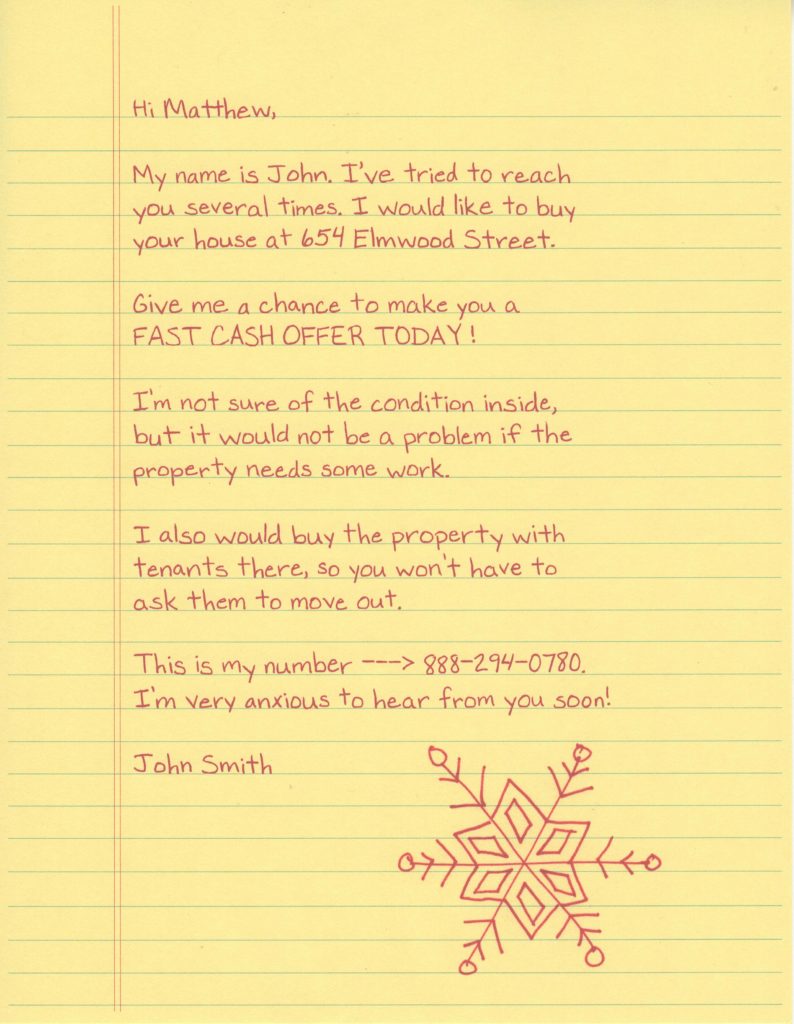 Hi Matthew,
My name is John. I've tried to reach
you several times. I would like to buy
your house at 654 Elmwood Street.
Give me a chance to make you a
FAST CASH OFFER TODAY!
I'm not sure of the condition inside,
but it would not be a problem if the
property needs some work.
I also would buy the property with
tenants there, so you won't have to
ask them to move out.
This is my number ---> 888-294-0780.
I'm very anxious to hear from you soon!
John Smith